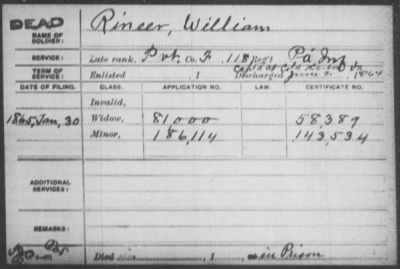 DEAD
NAME OF SOLDIER: Rineer, William
SERVICE: Late rank, Pvt. Co. F, 118 Reg't Pa Inf
TERM OF SERVICE: Enlisted , 1 Discharged June 2, 1864
Capt'd at Cold Harbor Va
DATE OF FILING. CLASS. APPLICATION NO. LAW. CERTIFICATE NO.
Invalid,
1865, Jan, 30 Widow, 81,000 58,389
Minor, 186,114 143,534
ADDITIONAL SERVICES:
REMARKS:
Died , 1 , in Prison